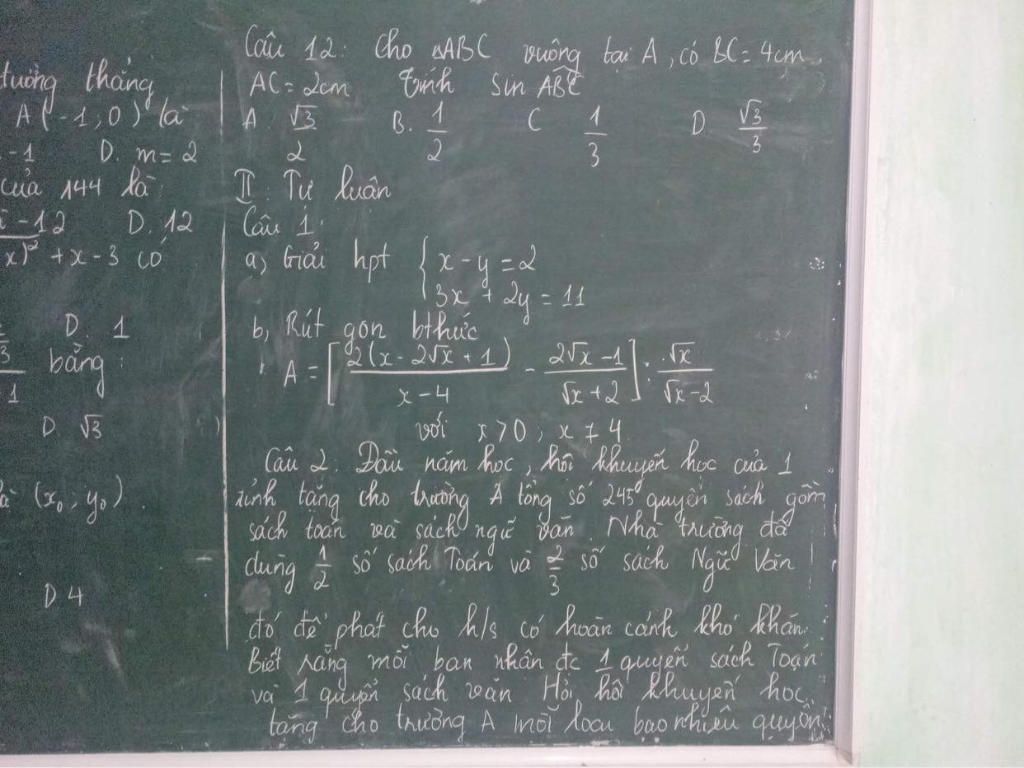 đường thẳng
A(-1;0) là
-1 D. m = 2
của 144 là
-12 D. 12
x)² + x - 3 có
D. 1
3 bằng:
-1
D √3
là (x₀; y₀)
D 4
Câu 12: Cho ΔABC vuông tại A, có BC = 4cm,
AC = 2cm Tính Sin ABC
A. √3/2 B. 1/2 C 1/3 D √3/3
II: Tự luận
Câu 1:
a, Giải hpt { x - y = 2
3x + 2y = 11
b, Rút gọn bthức
A = [2(x - 2√x + 1)/(x - 4) - (2√x - 1)/(√x + 2)] : √x/(√x - 2)
với x > 0; x ≠ 4
Câu 2. Đầu năm học, hội khuyến học của 1
tỉnh tặng cho trường A tổng số 245 quyển sách gồm
sách toán và sách ngữ văn. Nhà trường đã
dùng 1/2 số sách Toán và 2/3 số sách Ngữ Văn
đó để phát cho h/s có hoàn cảnh khó khăn.
Biết rằng mỗi bạn nhận đc 1 quyển sách Toán
và 1 quyển sách văn Hỏi hội khuyến học
tặng cho trường A mỗi loại bao nhiêu quyển